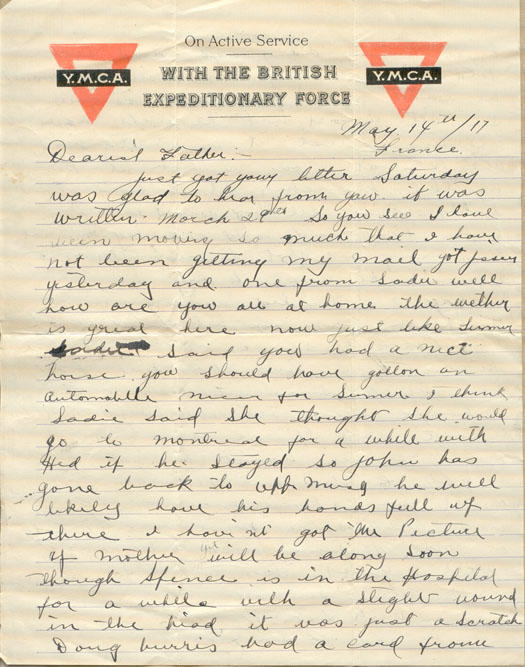 On Active Service
Y.M.C.A.
WITH THE BRITISH
EXPEDITIONARY FORCE
Y.M.C.A.
May 14th/17
France
Dearest Father:-
Just got your letter Saturday
was glad to hear from you it was
written March 29th So you see I have
been moving so much that I have
not been getting my mail got
yesterday and one from Sadie well
how are you all at home the wether
is great here now just like Summer
Sadie said you had a nice
horse you should have gotton an
automobile nicer for Sumer I think
Sadie said she thought she would
go to Montreal for a while with
if he stayed so John has
gone back to he will
likely have his hands full up
there I have nt got the Picture
of Mother yet will be along soon
though Spence is in the Hospital
for a while with a slight wound
in the head it was just a scratch
Doug burris had a card frome